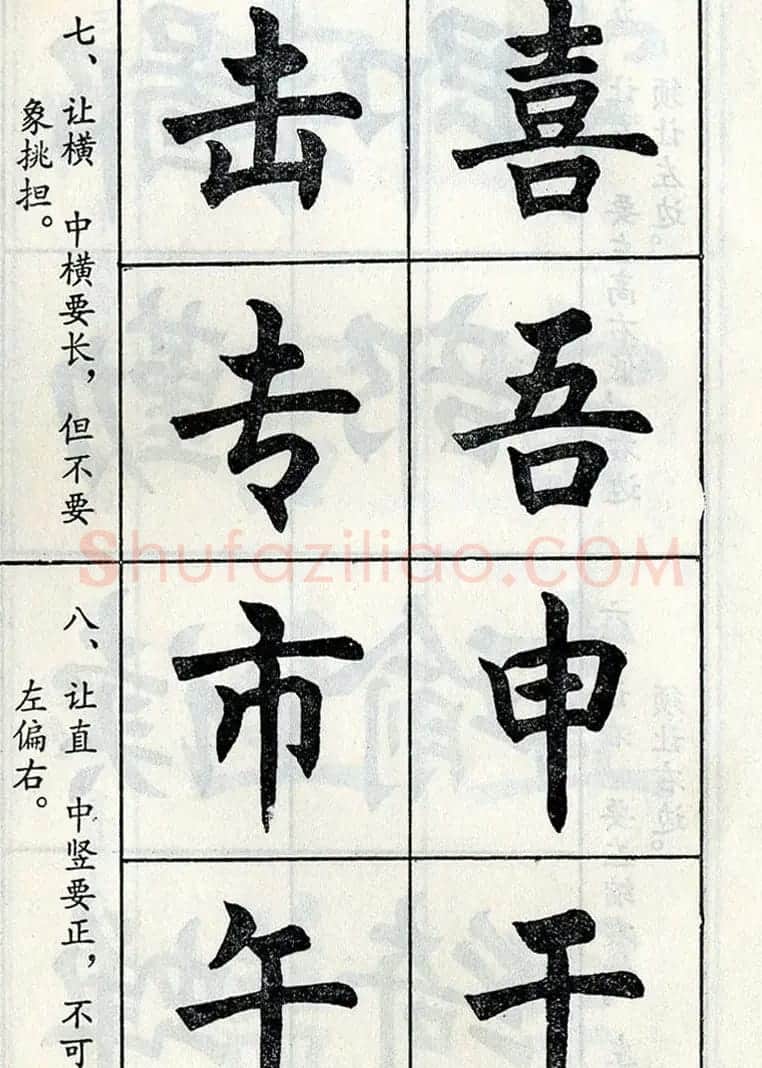 喜 击
吾 专
申 市
干 午
七、让横 中横要长，但不要
象挑担。
八、让直 中竖要正，不可
左偏右。
Shufaziliao.COM